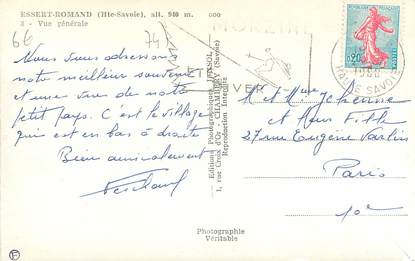 ESSERT-ROMAND (Hte-Savoie), alt. 940 m. 000
3 - Vue générale
6€
74
MORZINE
ET
HIVER
HAUTE SAVOIE
0,20
POSTES
Nous vous adressons
notre meilleur souvenir
et une vue de notre
petit pays. C'est le village
qui est en bas à droite
Bien amicalement
Editions Photographiques
1, rue Croix d'Or - CHAMBÉRY (Savoie)
Reproduction Interdite
M et Mme
et Leur Fille
27 rue Eugène Varlin
Paris
10e
Photographie
Véritable